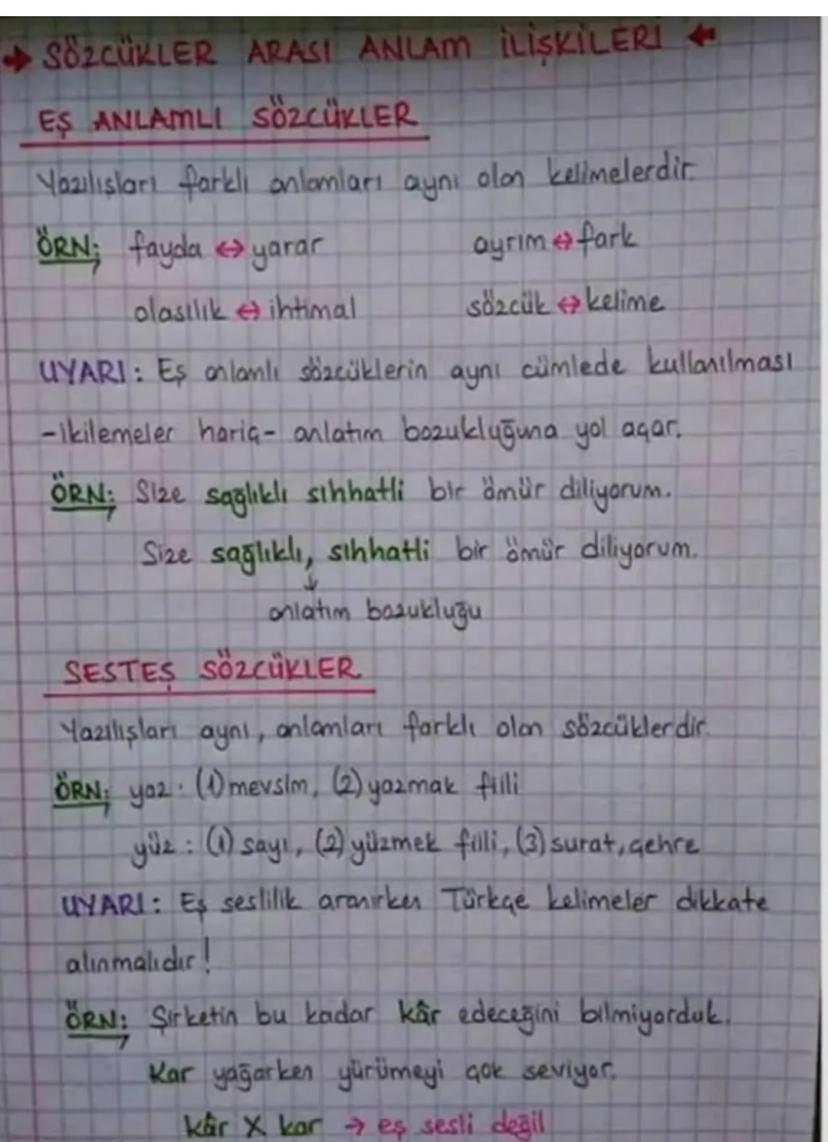 → SÖZCÜKLER ARASI ANLAM İLİŞKİLERİ ←
EŞ ANLAMLI SÖZCÜKLER
Yazılışları farklı anlamları aynı olan kelimelerdir.
ÖRN: fayda ↔ yarar ayrım ↔ fark
olasılık ↔ ihtimal sözcük ↔ kelime
UYARI: Eş anlamlı sözcüklerin aynı cümlede kullanılması
-ikilemeler hariç- anlatım bozukluğuna yol açar.
ÖRN: Size sağlıklı sıhhatli bir ömür diliyorum.
Size sağlıklı, sıhhatli bir ömür diliyorum.
↓
anlatım bozukluğu
SESTEŞ SÖZCÜKLER
Yazılışları aynı, anlamları farklı olan sözcüklerdir.
ÖRN: yaz: (1) mevsim, (2) yazmak fiili
yüz: (1) sayı, (2) yüzmek fiili, (3) surat, çehre
UYARI: Eş seslilik aranırken Türkçe kelimeler dikkate
alınmalıdır!
ÖRN: Şirketin bu kadar kâr edeceğini bilmiyorduk.
Kar yağarken yürümeyi çok seviyor.
kâr X kar → eş sesli değil